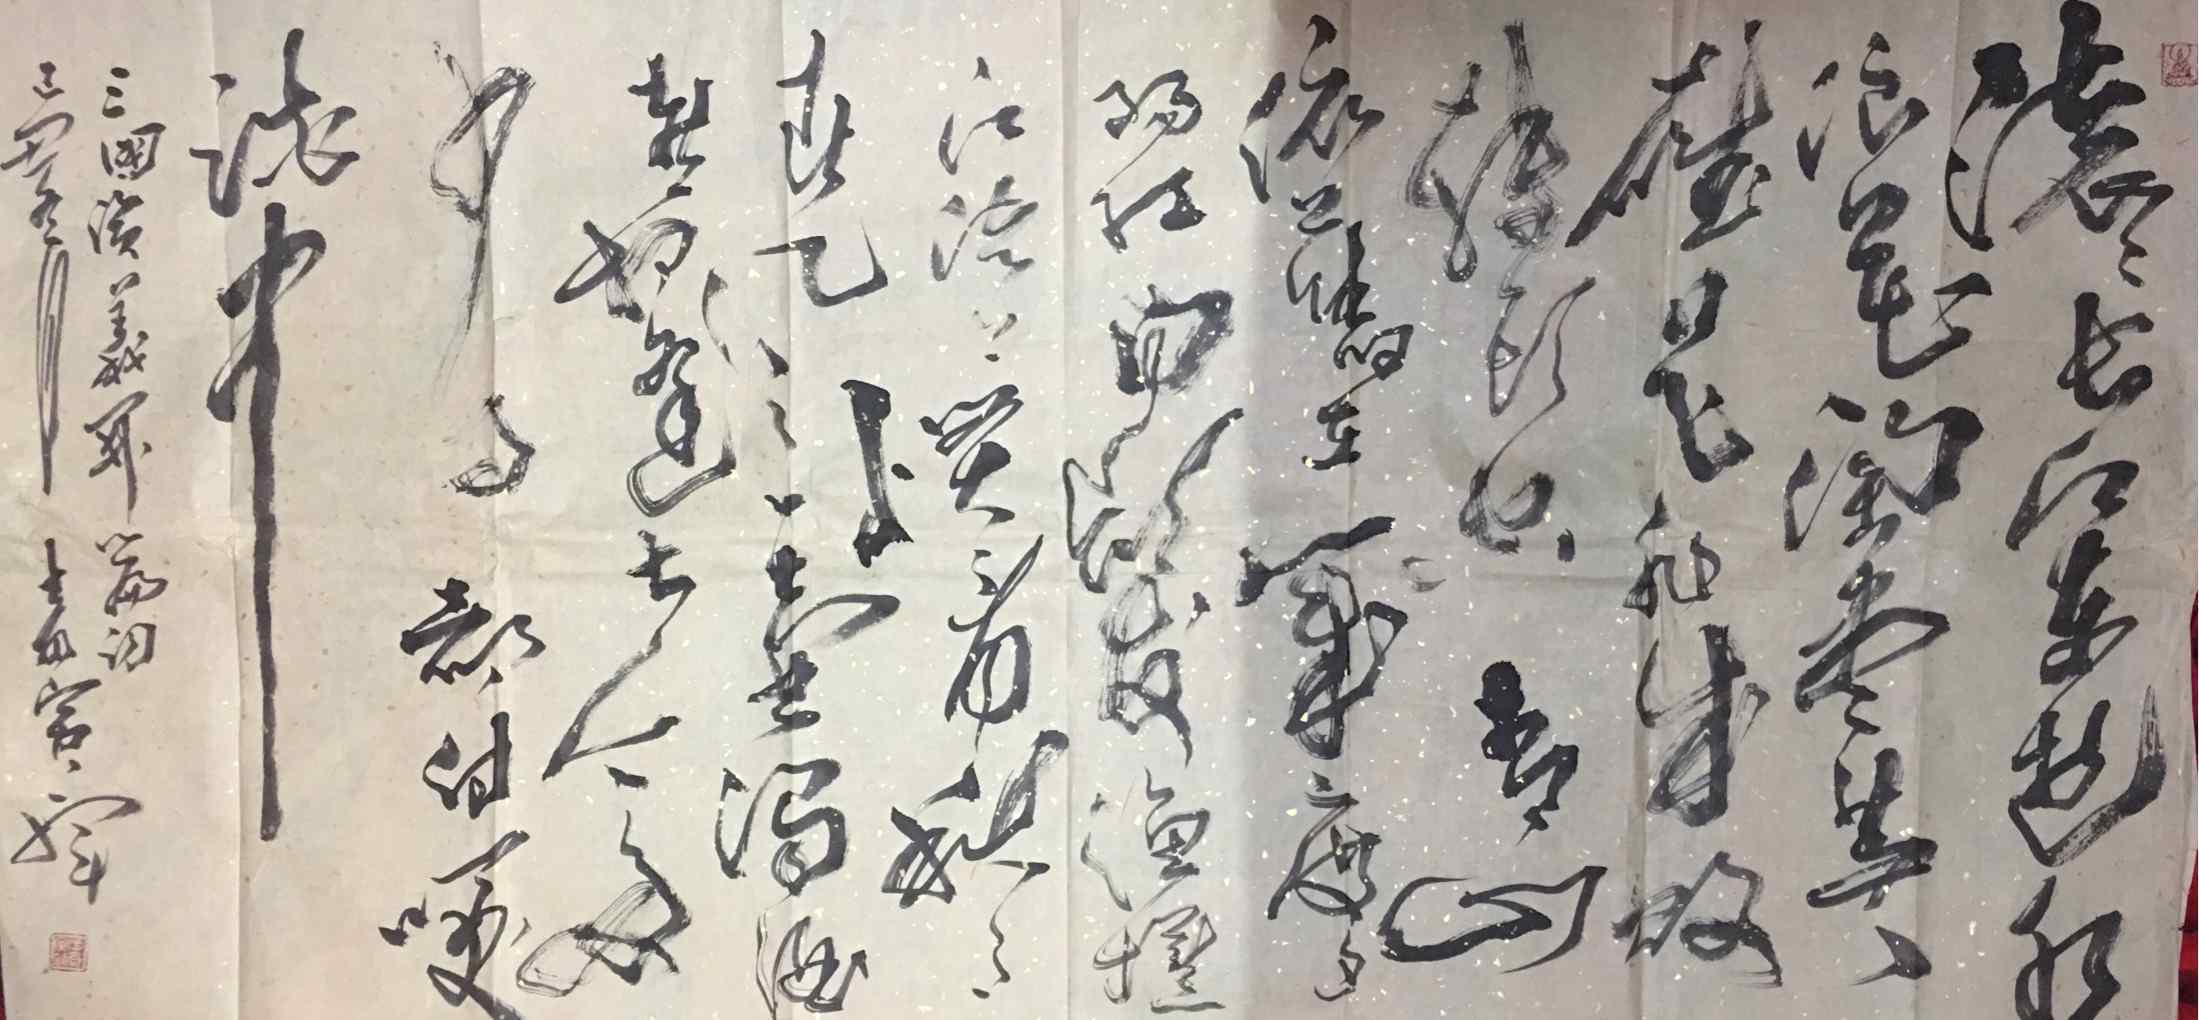 滚滚长江东逝水
浪花淘尽英
雄是非成败
转头空青山
依旧在几度夕
阳红白发渔樵
江渚上笑看秋月
春风一壶浊酒
喜相逢古今多
少事都付笑
谈中
三国演义开篇词